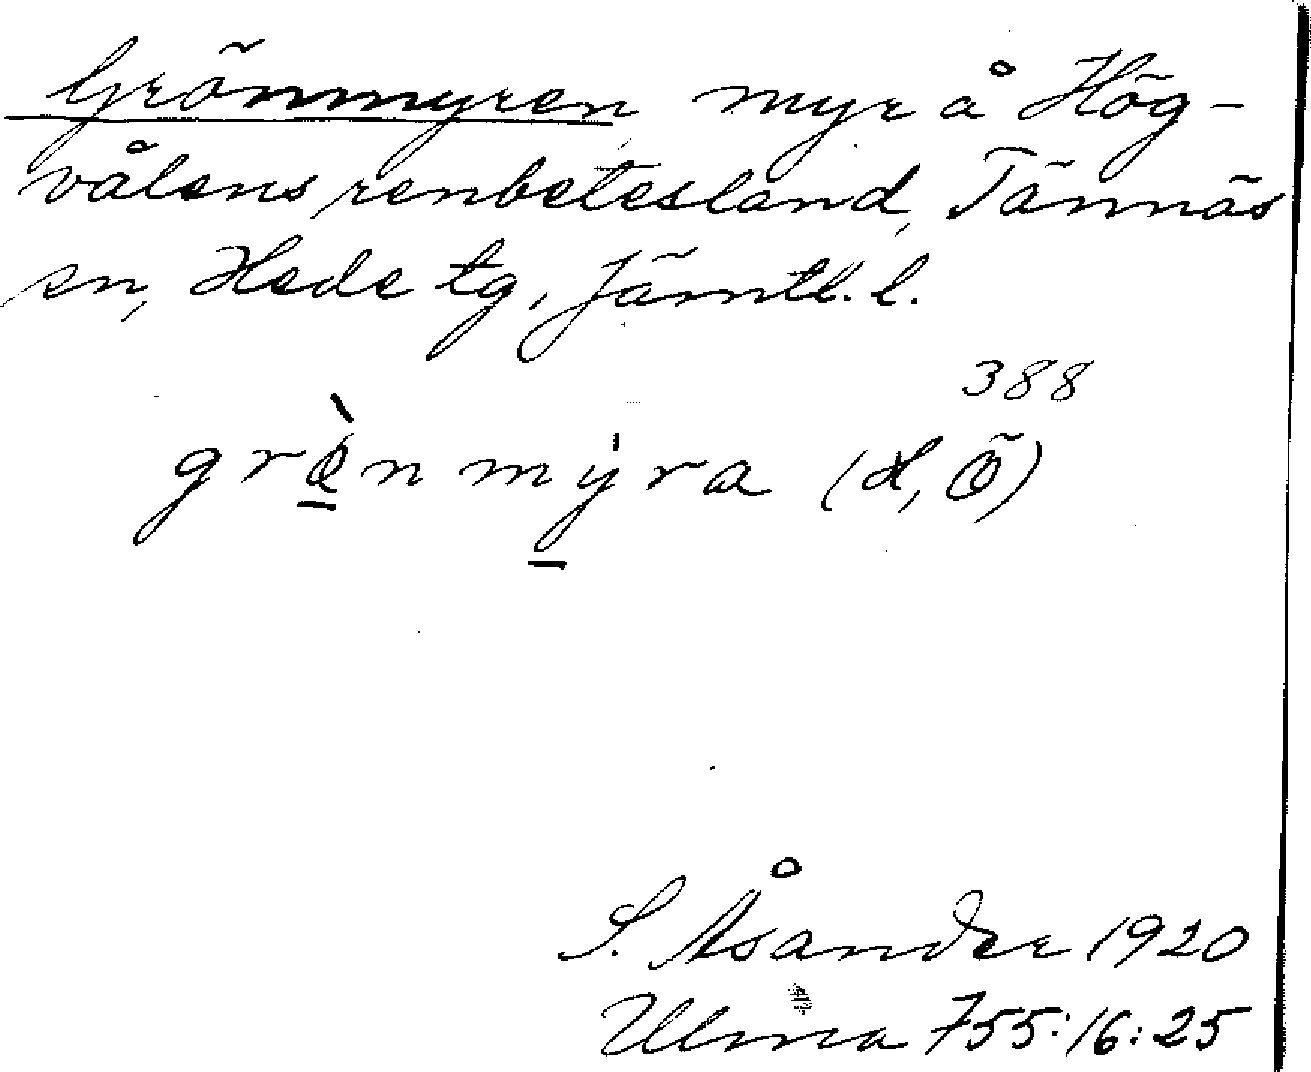 Grönmyren, myr å Hög-
vålens renbetesland, Tännäs
sn, Hede tg, Jämtl. l.
388
grø̱̀nmy̱̍ra (H, Ö)
S. Åsander 1920
Ulma 755:16:25